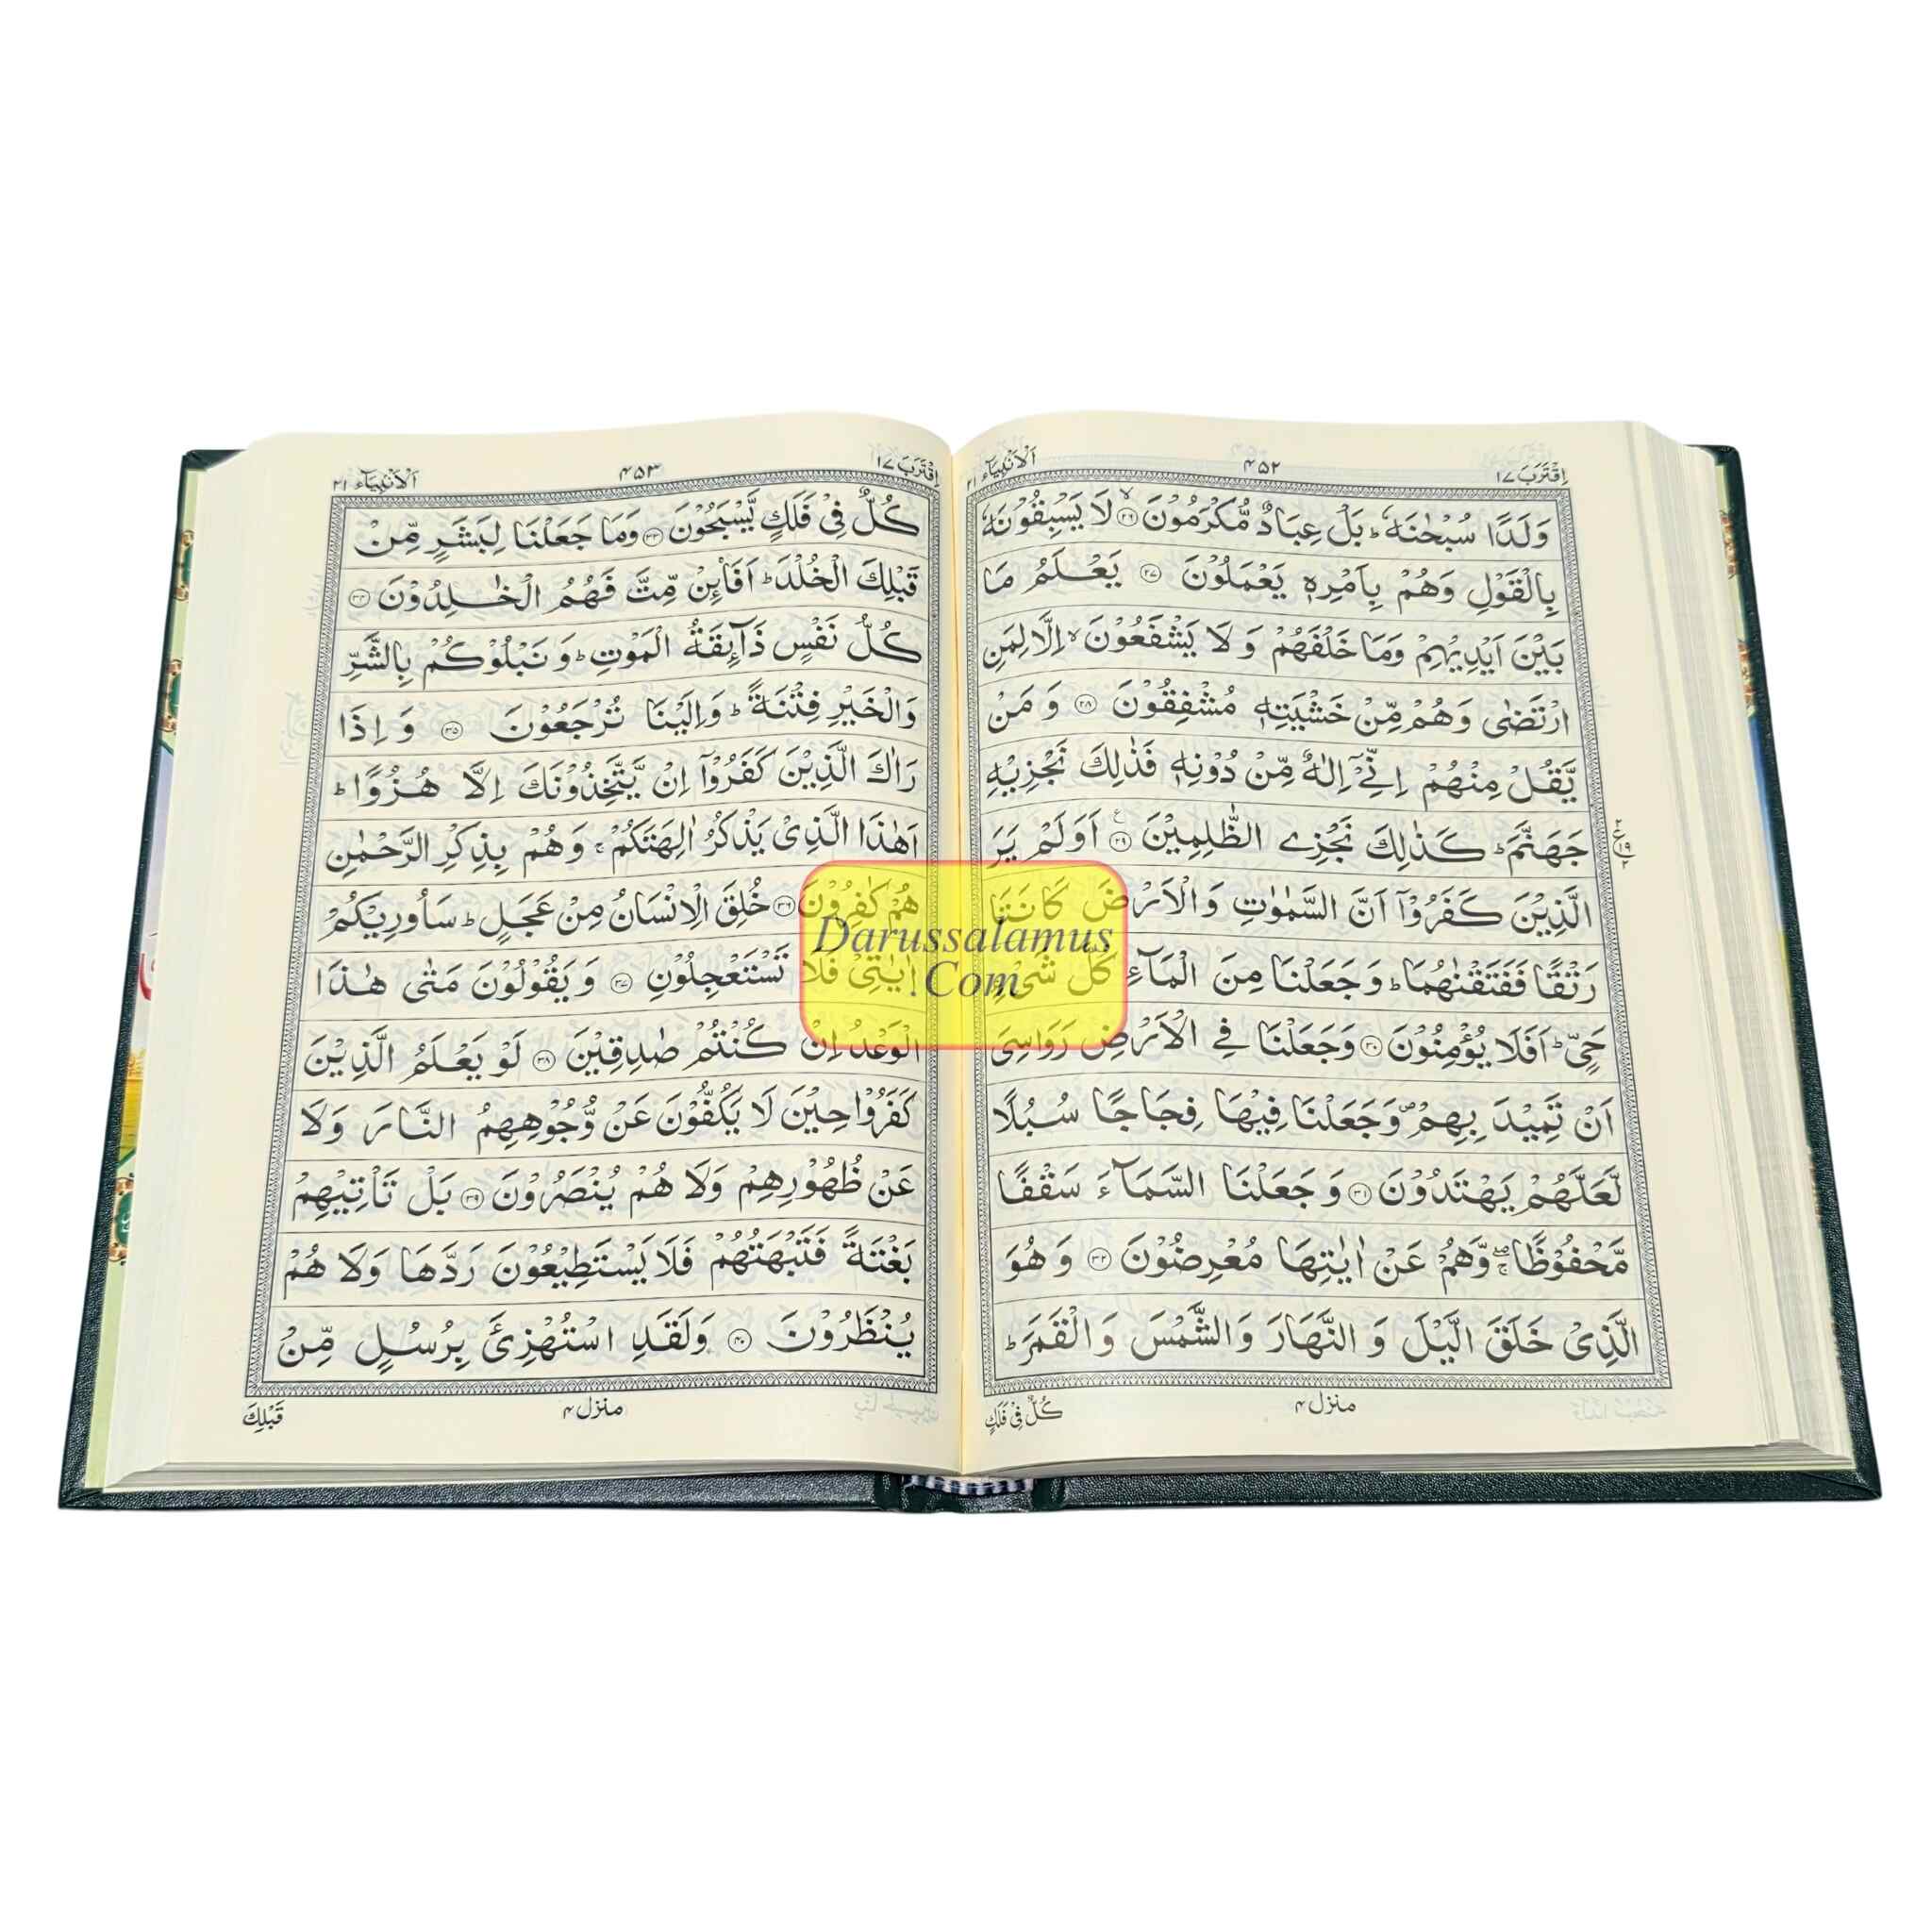 اِقْتَرَبَ ١٧
۴۵۲
اَلْاَنْۢبِيَآء ٢١
وَلَدًا سُبْحٰنَهٗ ؕ بَلْ عِبَادٌ مُّكْرَمُوْنَ ۙ﴿۲۶﴾ لَا يَسْبِقُوْنَهٗ
بِالْقَوْلِ وَهُمْ بِاَمْرِهٖ يَعْمَلُوْنَ ﴿۲۷﴾ يَعْلَمُ مَا
بَيْنَ اَيْدِيْهِمْ وَمَا خَلْفَهُمْ وَ لَا يَشْفَعُوْنَ ۙ اِلَّا لِمَنِ
ارْتَضٰى وَهُمْ مِّنْ خَشْيَتِهٖ مُشْفِقُوْنَ ﴿۲۸﴾ وَ مَنْ
يَّقُلْ مِنْهُمْ اِنِّيْٓ اِلٰهٌ مِّنْ دُوْنِهٖ فَذٰلِكَ نَجْزِيْهِ
جَهَنَّمَ ؕ كَذٰلِكَ نَجْزِي الظّٰلِمِيْنَ ﴿۲۹﴾ اَوَلَمْ يَرَ
الَّذِيْنَ كَفَرُوْٓا اَنَّ السَّمٰوٰتِ وَالْاَرْضَ كَانَتَا
رَتْقًا فَفَتَقْنٰهُمَا ؕ وَجَعَلْنَا مِنَ الْمَآءِ كُلَّ شَيْءٍ
حَيٍّ ؕ اَفَلَا يُؤْمِنُوْنَ ﴿۳۰﴾ وَجَعَلْنَا فِي الْاَرْضِ رَوَاسِيَ
اَنْ تَمِيْدَ بِهِمْ ۪ وَجَعَلْنَا فِيْهَا فِجَاجًا سُبُلًا
لَّعَلَّهُمْ يَهْتَدُوْنَ ﴿۳۱﴾ وَجَعَلْنَا السَّمَآءَ سَقْفًا
مَّحْفُوْظًا ۚۖ وَّهُمْ عَنْ اٰيٰتِهَا مُعْرِضُوْنَ ﴿۳۲﴾ وَهُوَ
الَّذِيْ خَلَقَ الَّيْلَ وَ النَّهَارَ وَالشَّمْسَ وَالْقَمَرَ ؕ
منزل ۴
كُلٌّ فِيْ فَلَكٍ
اِقْتَرَبَ ١٧
۴۵۳
اَلْاَنْۢبِيَآء ٢١
كُلٌّ فِيْ فَلَكٍ يَّسْبَحُوْنَ ﴿۳۳﴾ وَمَا جَعَلْنَا لِبَشَرٍ مِّنْ
قَبْلِكَ الْخُلْدَ ؕ اَفَا۟ئِنْ مِّتَّ فَهُمُ الْخٰلِدُوْنَ ﴿۳۴﴾
كُلُّ نَفْسٍ ذَآئِقَةُ الْمَوْتِ ؕ وَ نَبْلُوْكُمْ بِالشَّرِّ
وَالْخَيْرِ فِتْنَةً ؕ وَاِلَيْنَا تُرْجَعُوْنَ ﴿۳۵﴾ وَ اِذَا
رَاٰكَ الَّذِيْنَ كَفَرُوْٓا اِنْ يَّتَّخِذُوْنَكَ اِلَّا هُزُوًا ؕ
اَهٰذَا الَّذِيْ يَذْكُرُ اٰلِهَتَكُمْ ۚ وَهُمْ بِذِكْرِ الرَّحْمٰنِ
هُمْ كٰفِرُوْنَ ﴿۳۶﴾ خُلِقَ الْاِنْسَانُ مِنْ عَجَلٍ ؕ سَاُورِيْكُمْ
اٰيٰتِيْ فَلَا تَسْتَعْجِلُوْنِ ﴿۳۷﴾ وَيَقُوْلُوْنَ مَتٰى هٰذَا
الْوَعْدُ اِنْ كُنْتُمْ صٰدِقِيْنَ ﴿۳۸﴾ لَوْ يَعْلَمُ الَّذِيْنَ
كَفَرُوْا حِيْنَ لَا يَكُفُّوْنَ عَنْ وُّجُوْهِهِمُ النَّارَ وَلَا
عَنْ ظُهُوْرِهِمْ وَلَا هُمْ يُنْصَرُوْنَ ﴿۳۹﴾ بَلْ تَاْتِيْهِمْ
بَغْتَةً فَتَبْهَتُهُمْ فَلَا يَسْتَطِيْعُوْنَ رَدَّهَا وَلَا هُمْ
يُنْظَرُوْنَ ﴿۴۰﴾ وَلَقَدِ اسْتُهْزِئَ بِرُسُلٍ مِّنْ
منزل ۴
قَبْلِكَ
Darussalamus
.Com